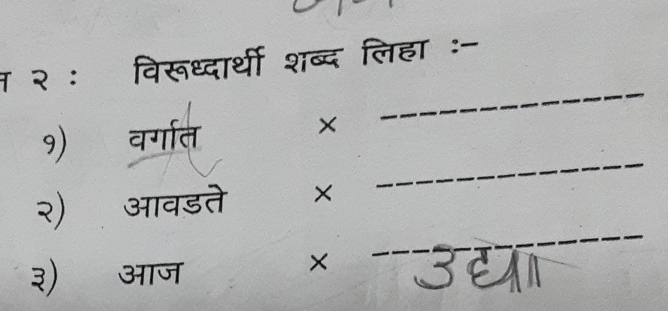 २ : विरूध्दार्थी शब्द लिहा :–
१) वर्गात × ------------
२) आवडते × ------------
३) आज × ------------ उद्या